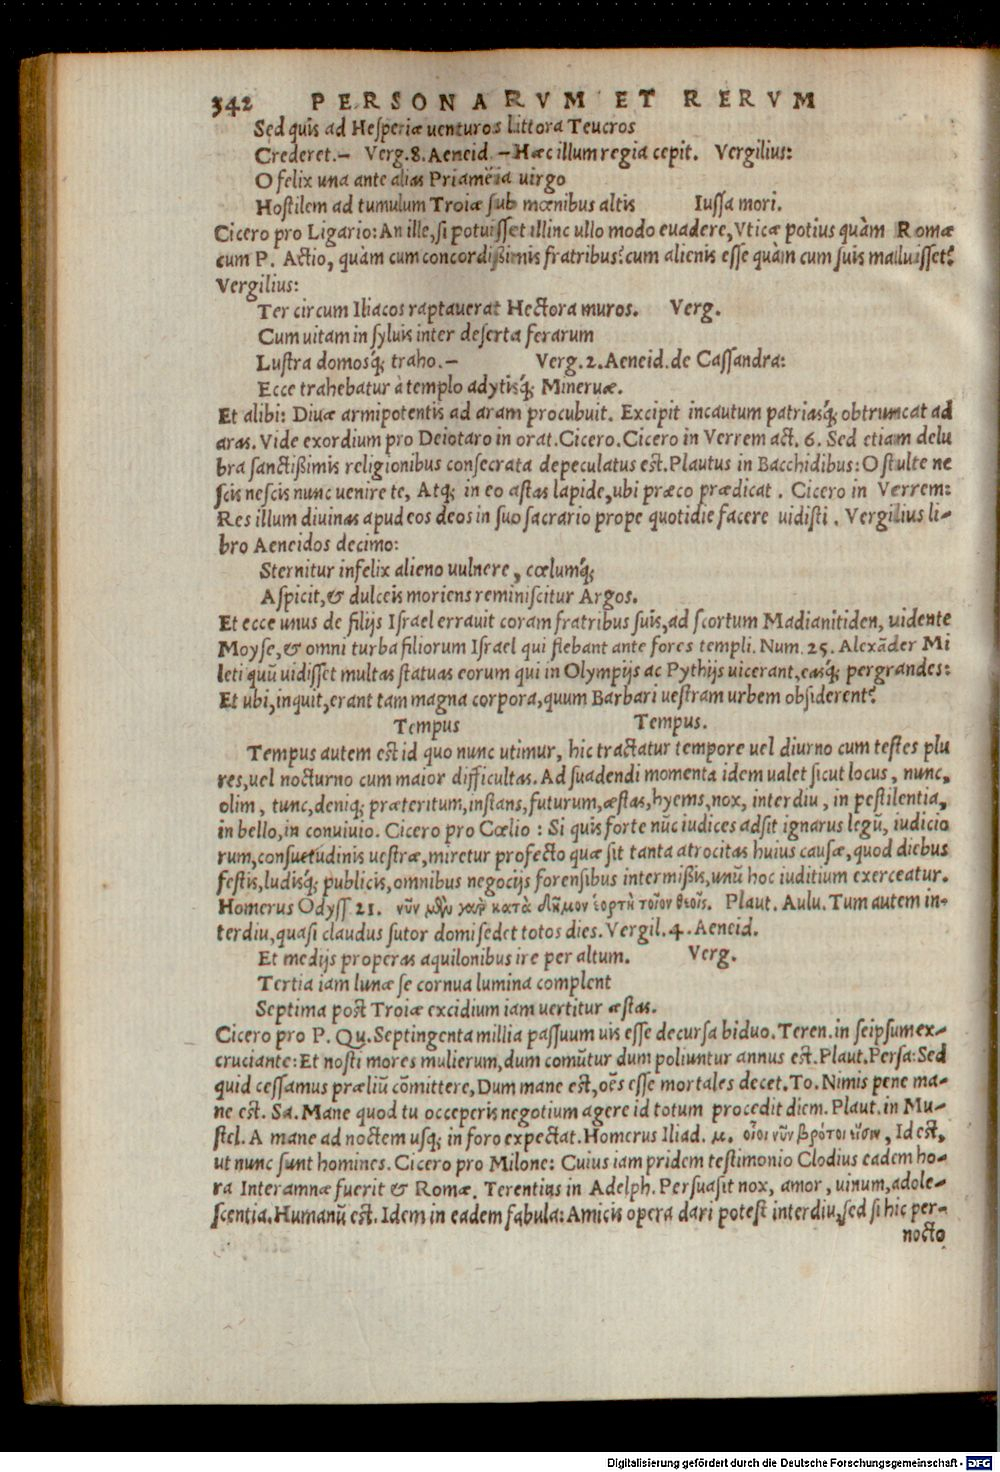 342 PERSONARVM ET RERVM
Sed quis ad Hesperiæ uenturos littora Teucros
Crederet.– Verg.8.Aeneid –Hæc illum regia cepit. Vergilius:
O felix una ante alias Priamëia uirgo
Hostilem ad tumulum Troiæ sub mœnibus altis Iussa mori.
Cicero pro Ligario: An ille, si potuisset illinc ullo modo euadere, Vticæ potius quàm Romæ
cum P. Actio, quàm cum concordißimis fratribus? cum alienis esse quàm cum suis maluisset?
Vergilius:
Ter circum Iliacos raptauerat Hectora muros. Verg.
Cum uitam in syluis inter deserta ferarum
Lustra domosq́; traho.– Verg.2.Aeneid.de Cassandra:
Ecce trahebatur à templo adytisq́; Mineruæ.
Et alibi: Diuæ armipotentis ad aram procubuit. Excipit incautum patriasq́; obtruncat ad
aras. Vide exordium pro Deiotaro in orat. Cicero. Cicero in Verrem act. 6. Sed etiam delu
bra sanctißimis religionibus consecrata depeculatus est. Plautus in Bacchidibus: O stulte ne
scis nescis nunc uenire te, Atq; in eo astas lapide, ubi præco prædicat. Cicero in Verrem:
Res illum diuinas apud eos deos in suo sacrario prope quotidie facere uidisti. Vergilius li-
bro Aeneidos decimo:
Sternitur infelix alieno uulnere, cœlumq́;
Aspicit, & dulceis moriens reminiscitur Argos.
Et ecce unus de filijs Israel errauit coram fratribus suis, ad scortum Madianitiden, uidente
Moyse, & omni turba filiorum Israel qui flebant ante fores templi. Num. 25. Alexãder Mi
leti quũ uidisset multas statuas eorum qui in Olympijs ac Pythijs uicerant, easq́; pergrandes:
Et ubi, inquit, erant tam magna corpora, quum Barbari uestram urbem obsiderent?
Tempus Tempus.
Tempus autem est id quo nunc utimur, hic tractatur tempore uel diurno cum testes plu
res, uel nocturno cum maior difficultas. Ad suadendi momenta idem ualet sicut locus, nunc,
olim, tunc, deniq; præteritum, instans, futurum, æstas, hyems, nox, interdiu, in pestilentia,
in bello, in conuiuio. Cicero pro Cœlio: Si quis forte nũc iudices adsit ignarus legũ, iudicio
rum, consuetudinis uestræ, miretur profecto quæ sit tanta atrocitas huius causæ, quod diebus
festis, ludisq́; publicis, omnibus negocijs forensibus intermißis, unũ hoc iuditium exerceatur.
Homerus Odyss 21. νῦν μὲν γὰρ κατὰ δῆμον ἑορτὴ τοῖον θεοῖς. Plaut. Aulu. Tum autem in-
terdiu, quasi claudus sutor domi sedet totos dies. Vergil. 4. Aeneid.
Et medijs properas aquilonibus ire per altum. Verg.
Tertia iam lunæ se cornua lumina complent
Septima post Troiæ excidium iam uertitur æstas.
Cicero pro P. Qu. Septingenta millia passuum uis esse decursa biduo. Teren. in seipsum ex-
cruciante: Et nosti mores mulierum, dum comũtur dum poliuntur annus est. Plaut. Persa: Sed
quid cessamus præliũ cõmittere, Dum mane est, oẽs esse mortales decet. To. Nimis pene ma-
ne est. Sa. Mane quod tu occeperis negotium agere id totum procedit diem. Plaut. in Mu-
stel. A mane ad noctem usq; in foro expectat. Homerus Iliad. μ. οἷοι νῦν βρότοι εἴσιν, Id est,
ut nunc sunt homines. Cicero pro Milone: Cuius iam pridem testimonio Clodius eadem ho-
ra Interamnæ fuerit & Romæ. Terentius in Adelph. Persuasit nox, amor, uinum, adole-
scentia. Humanũ est. Idem in eadem fabula: Amicis opera dari potest interdiu, sed si hic per-
nocto
Digitalisierung gefördert durch die Deutsche Forschungsgemeinschaft - DFG